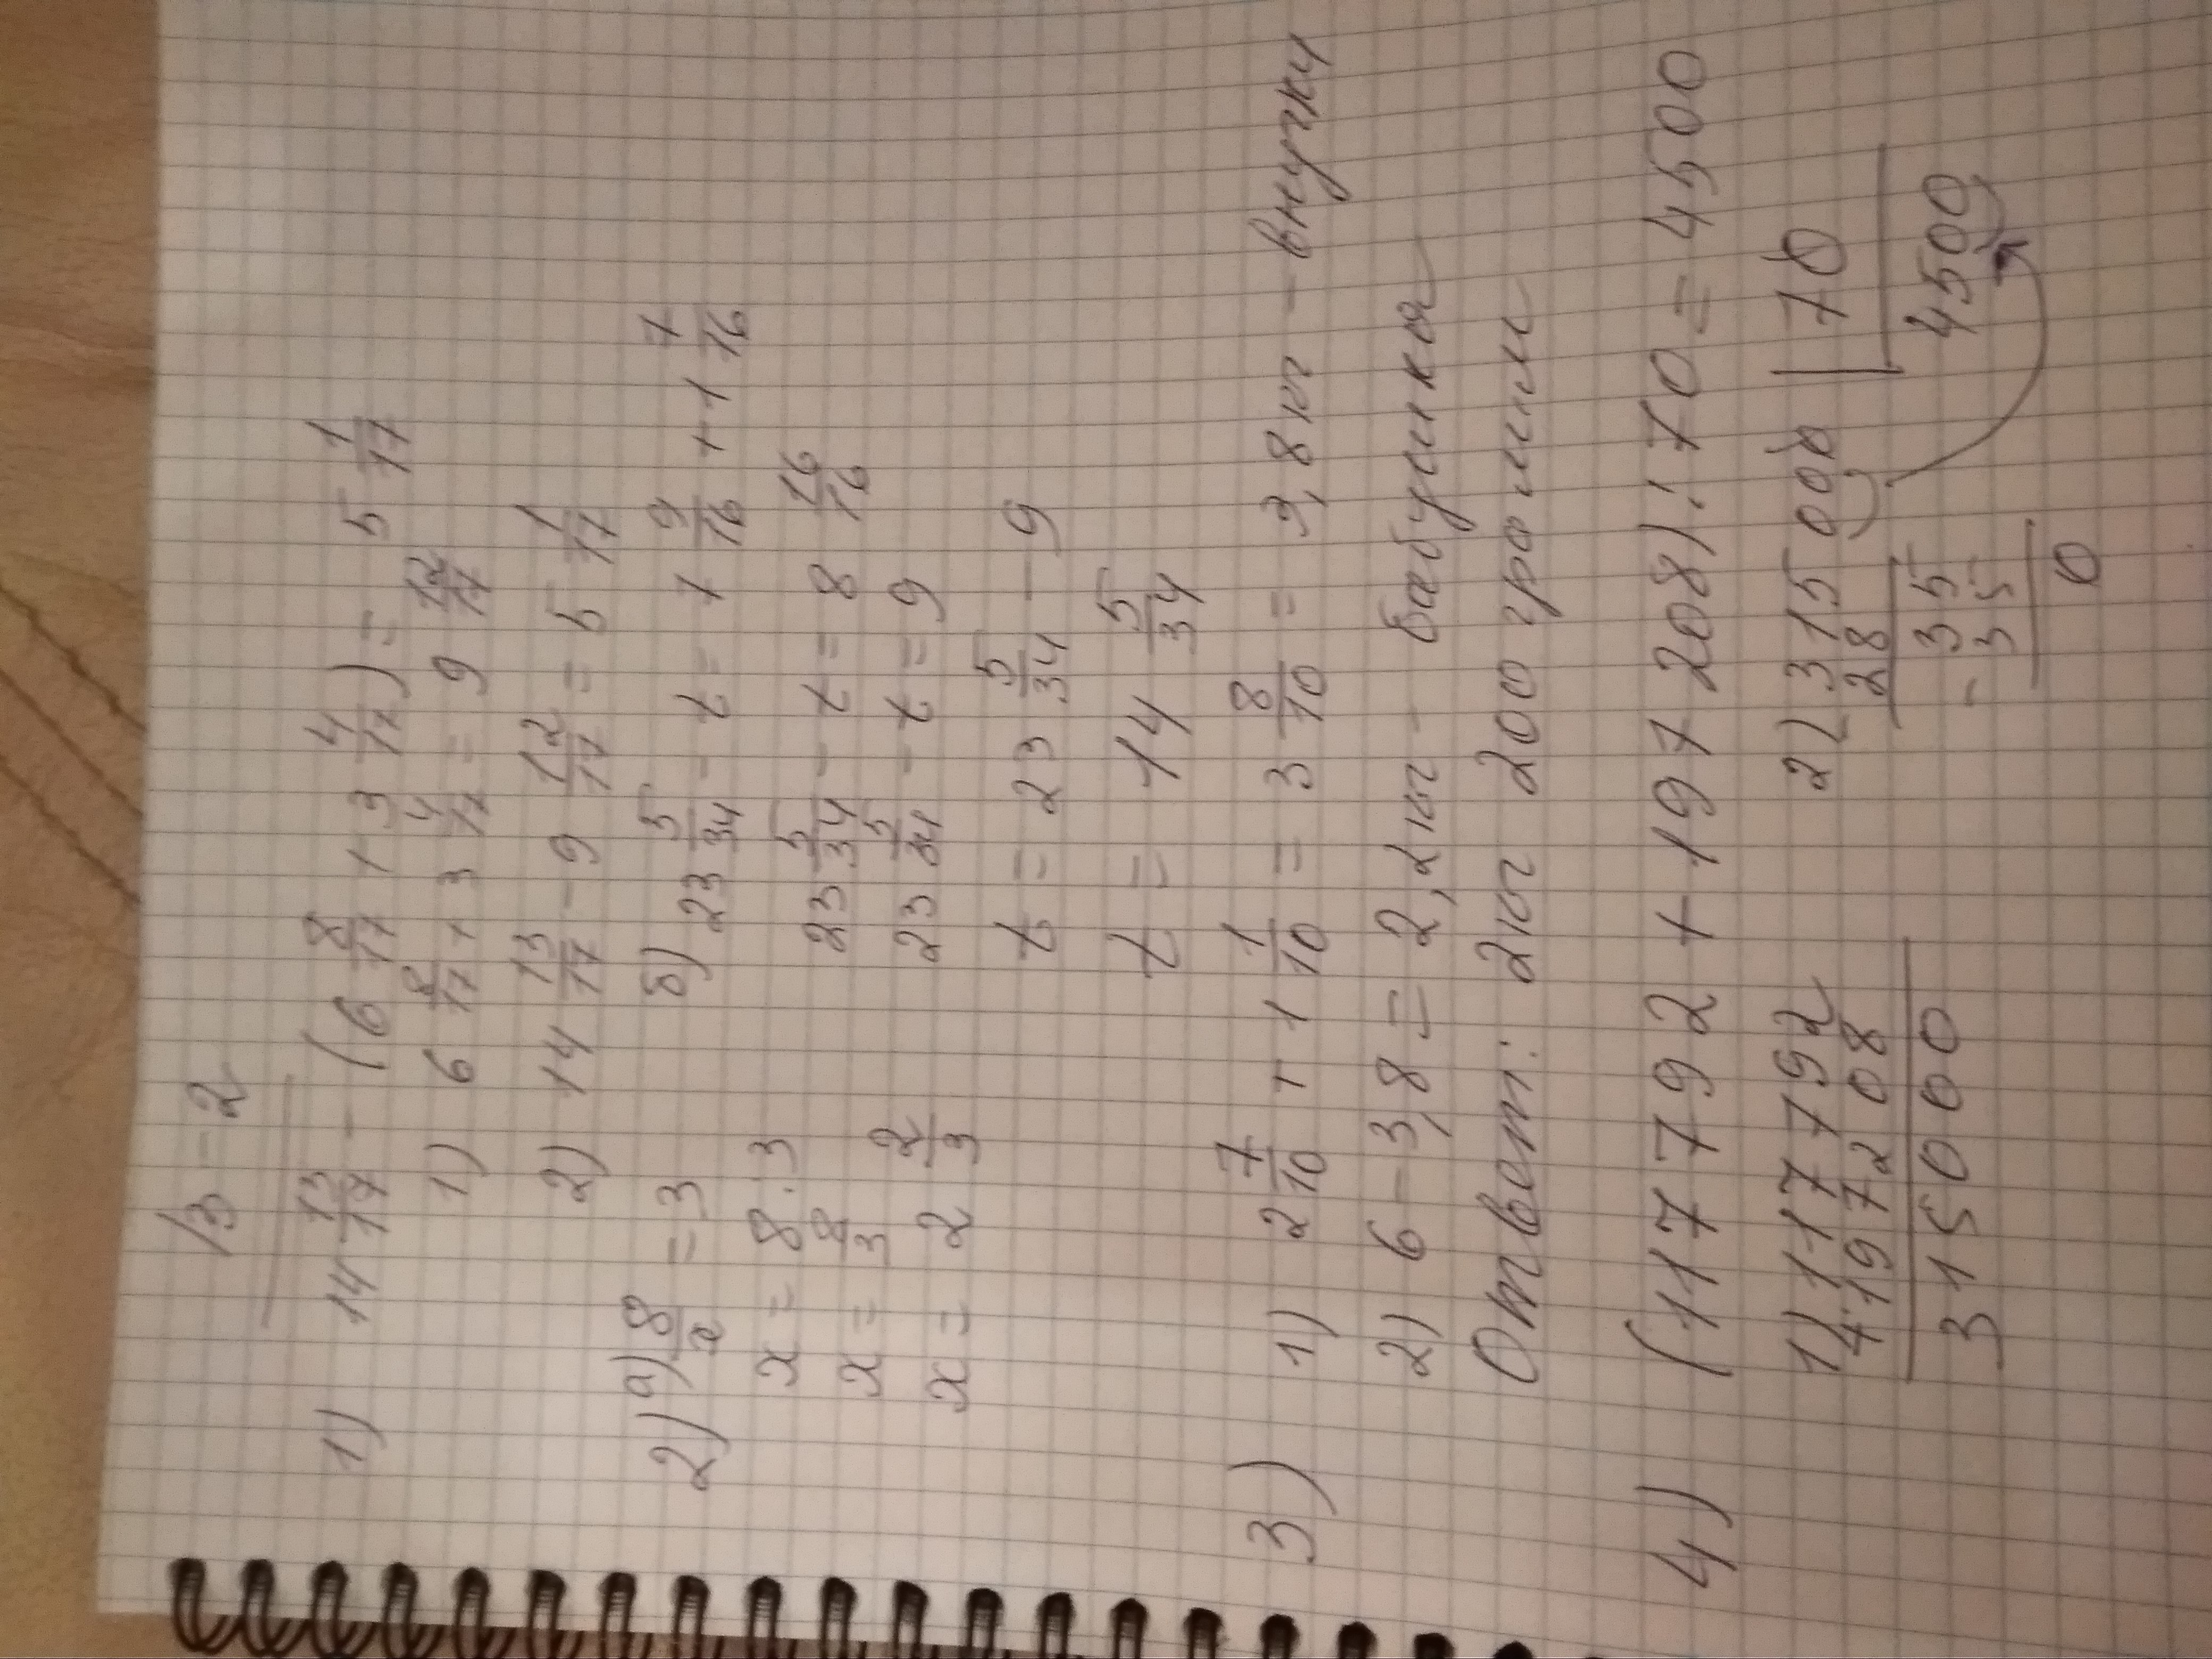 В - 2
1) 14 13/17 - (6 8/17 + 3 4/17) = 5 1/17
1) 6 8/17 + 3 4/17 = 9 12/17
2) 14 13/17 - 9 12/17 = 5 1/17
2) а) 8/x = 3
x = 8 : 3
x = 8/3
x = 2 2/3
б) 23 5/34 - t = 7 9/16 + 1 7/16
23 5/34 - t = 8 16/16
23 5/34 - t = 9
t = 23 5/34 - 9
t = 14 5/34
3) 1) 2 7/10 + 1 1/10 = 3 8/10 = 3,8 кг - внучки
2) 6 - 3,8 = 2,2 кг - бабушка
Ответ: 2 кг 200 грамм
4) (117 792 + 197 208) : 70 = 4500
1) 117 792
+ 197 208
315 000
2) 315 000 | 70
28
4500
- 35
35
0